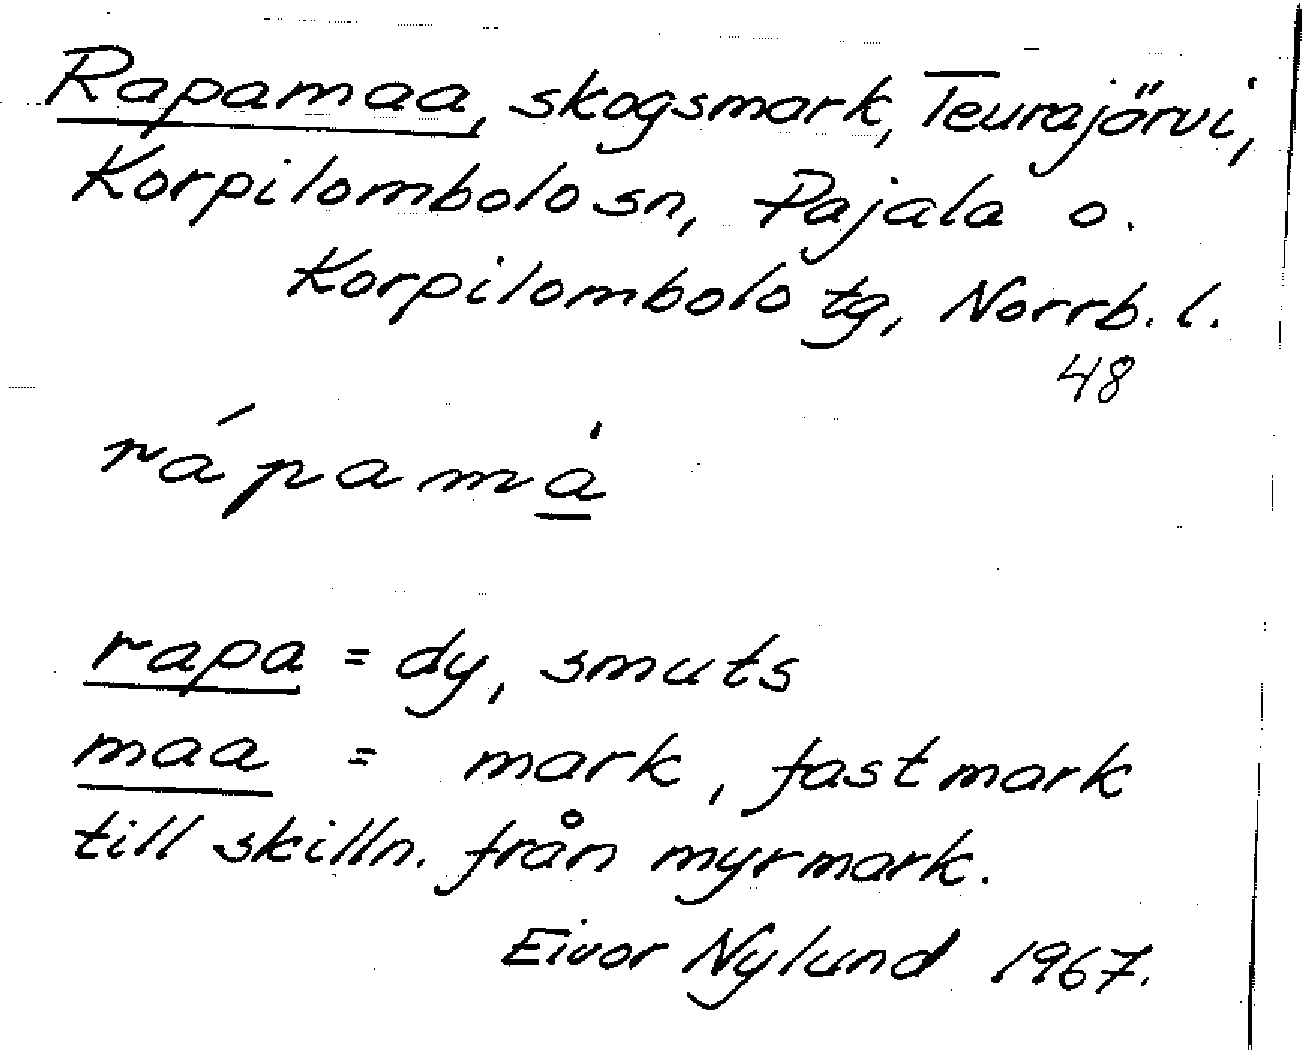 Rapamaa, skogsmark, Teurajärvi,
Korpilombolo sn, Pajala o.
Korpilombolo tg, Norrb. l.
48
rápamà̱
rapa = dy, smuts
maa = mark, fastmark
till skilln. från myrmark.
Eivor Nylund 1967.